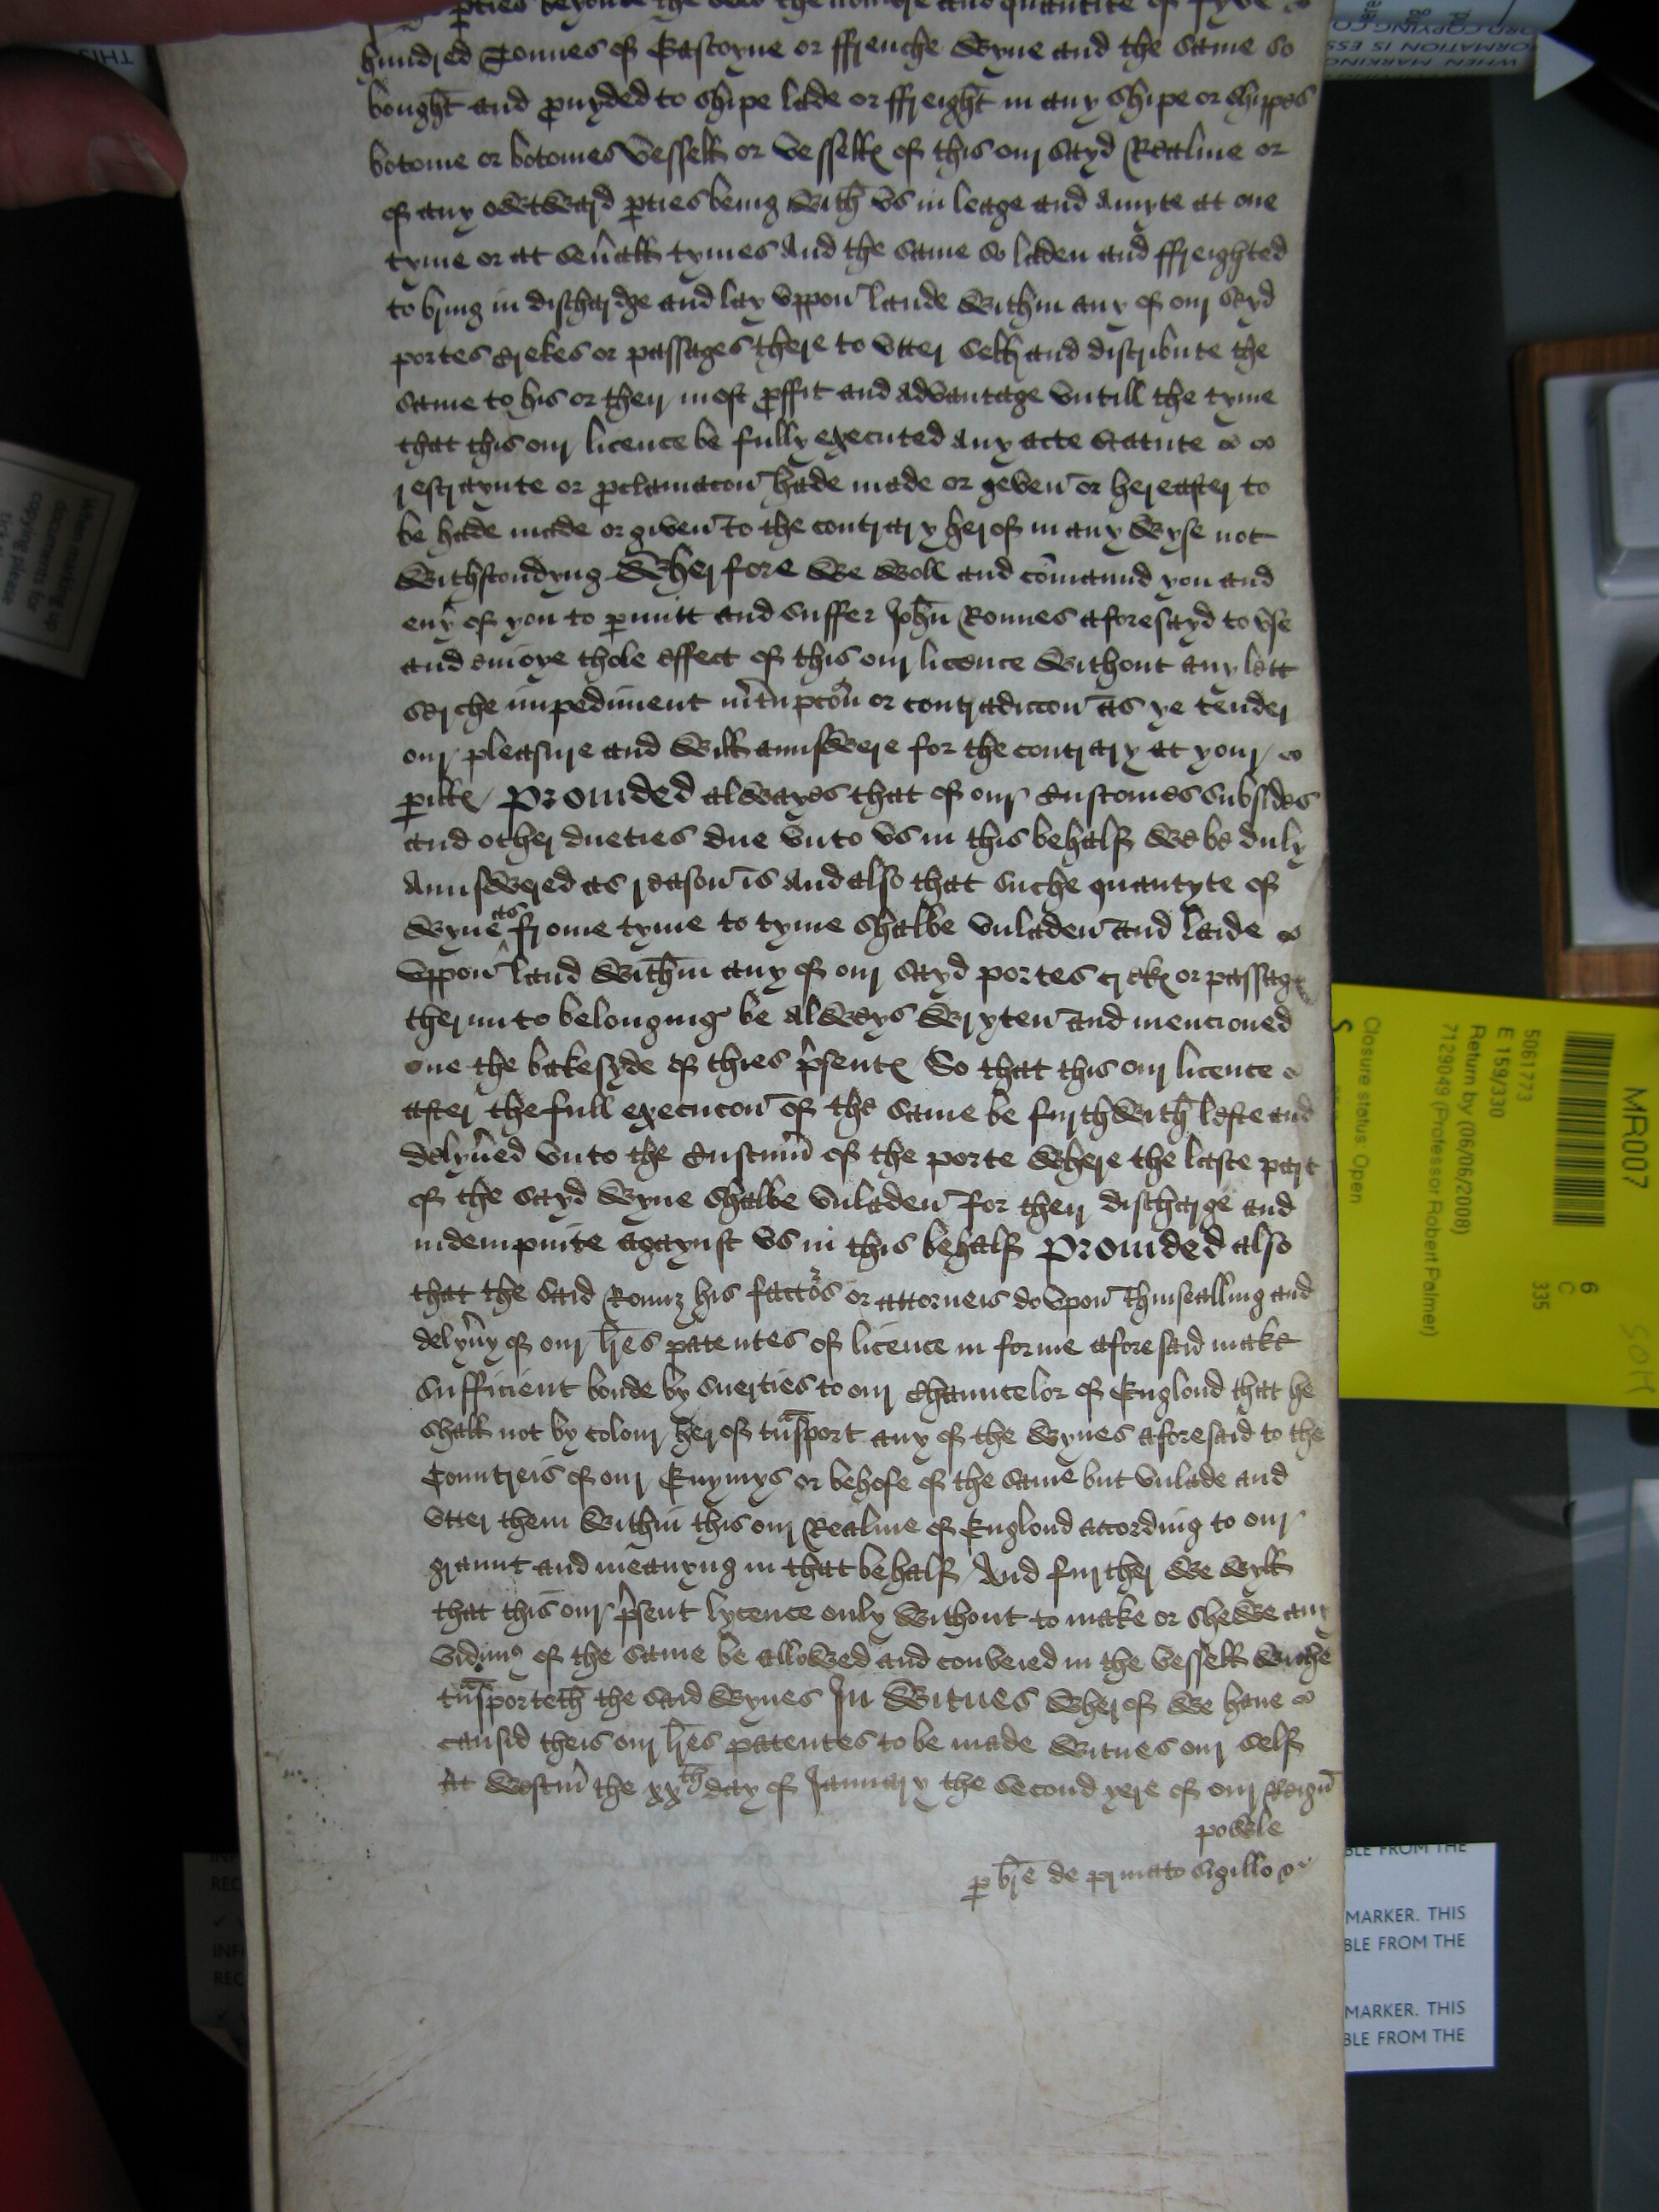 parties beyonde the Sees the nombre and quantite of fyve
hundred Tonnes of Gascoyne or ffrenche Wyne and the same so
bought and provyded to shipe lade or ffreight in any shipe or shippes
botome or botomes vessell or vessells of this our sayd Realme or
of any owtward parties being with us in leage and Amyte at one
tyme or at severall tymes And the same so laden and ffreighted
to bring in discharge and lay uppon lande within any of our sayd
portes crekes or passages there to utter sell and distribute the
same to his or their most proffit and advantage untill the tyme
that this our licence be fully executed any acte statute
restraynte or proclamacon hade made or geven or hereafter to
be hade made or given to the contrary herof in any wyse not
withstondyng Wherfore we woll and comaund you and
every of you to permitt and suffer John Ronnes aforesayd to use
and enioye thole effect of this our licence without any lett
serche impediment interrupcon or contradiccon as ye tender
our pleasure and will aunswere for the contrary at your
perills Provided alwayes that of our Customes subsides
and other dueties due unto us in this behalf we be duly
Aunswered as reason is And also that suche quantyte of
wyne as frome tyme to tyme shalbe unladen and laide
uppon land within any of our sayd portes crekes or passages
therunto belonging be alweys wryten and mencioned
one the bakesyde of thies presentes So that this our licence
after the full execucon of the same be furthwith lefte and
delyvered unto the Custumer of the porte where the laste part
of the sayd wyne shalbe unladen for their discharge and
indempnite agaynst us in this behalf Provided also
that the said Ronnz his factors or attorneis do upon thinsealling and
delyvery of our lres patentes of licence in forme aforesaid make
sufficient bonde by suerties to our Chauncelor of Englond that he
shall not by colour herof transport any of the wynes aforesaid to the
Countreis of our Enymys or behofe of the same but unlade and
utter them within this our Realme of Englond according to our
graunt and meanyng in that behalf And further we wyll
that this our present lycence only without to make or shewe any
vidimus of the same be allowed and conveied in the vessell wiche
transporteth the said wynes In Witnes wherof we have
causid theis our lres patentes to be made Witnes our self
At Westm the xxth day of January the second yere of our Reign
powle
per bre de privato sigillo
MR007
5061773
E 159/330
Return by (06/06/2008)
7129049 (Professor Robert Palmer)
Closure status: Open
6
C
335
S
HOS
When marking up
documents for
copying please
THIS
WHEN MARKING
ORMATION IS ESS
ORD COPYING CO
BLE FROM THE
MARKER. THIS
BLE FROM THE
MARKER. THIS
BLE FROM THE